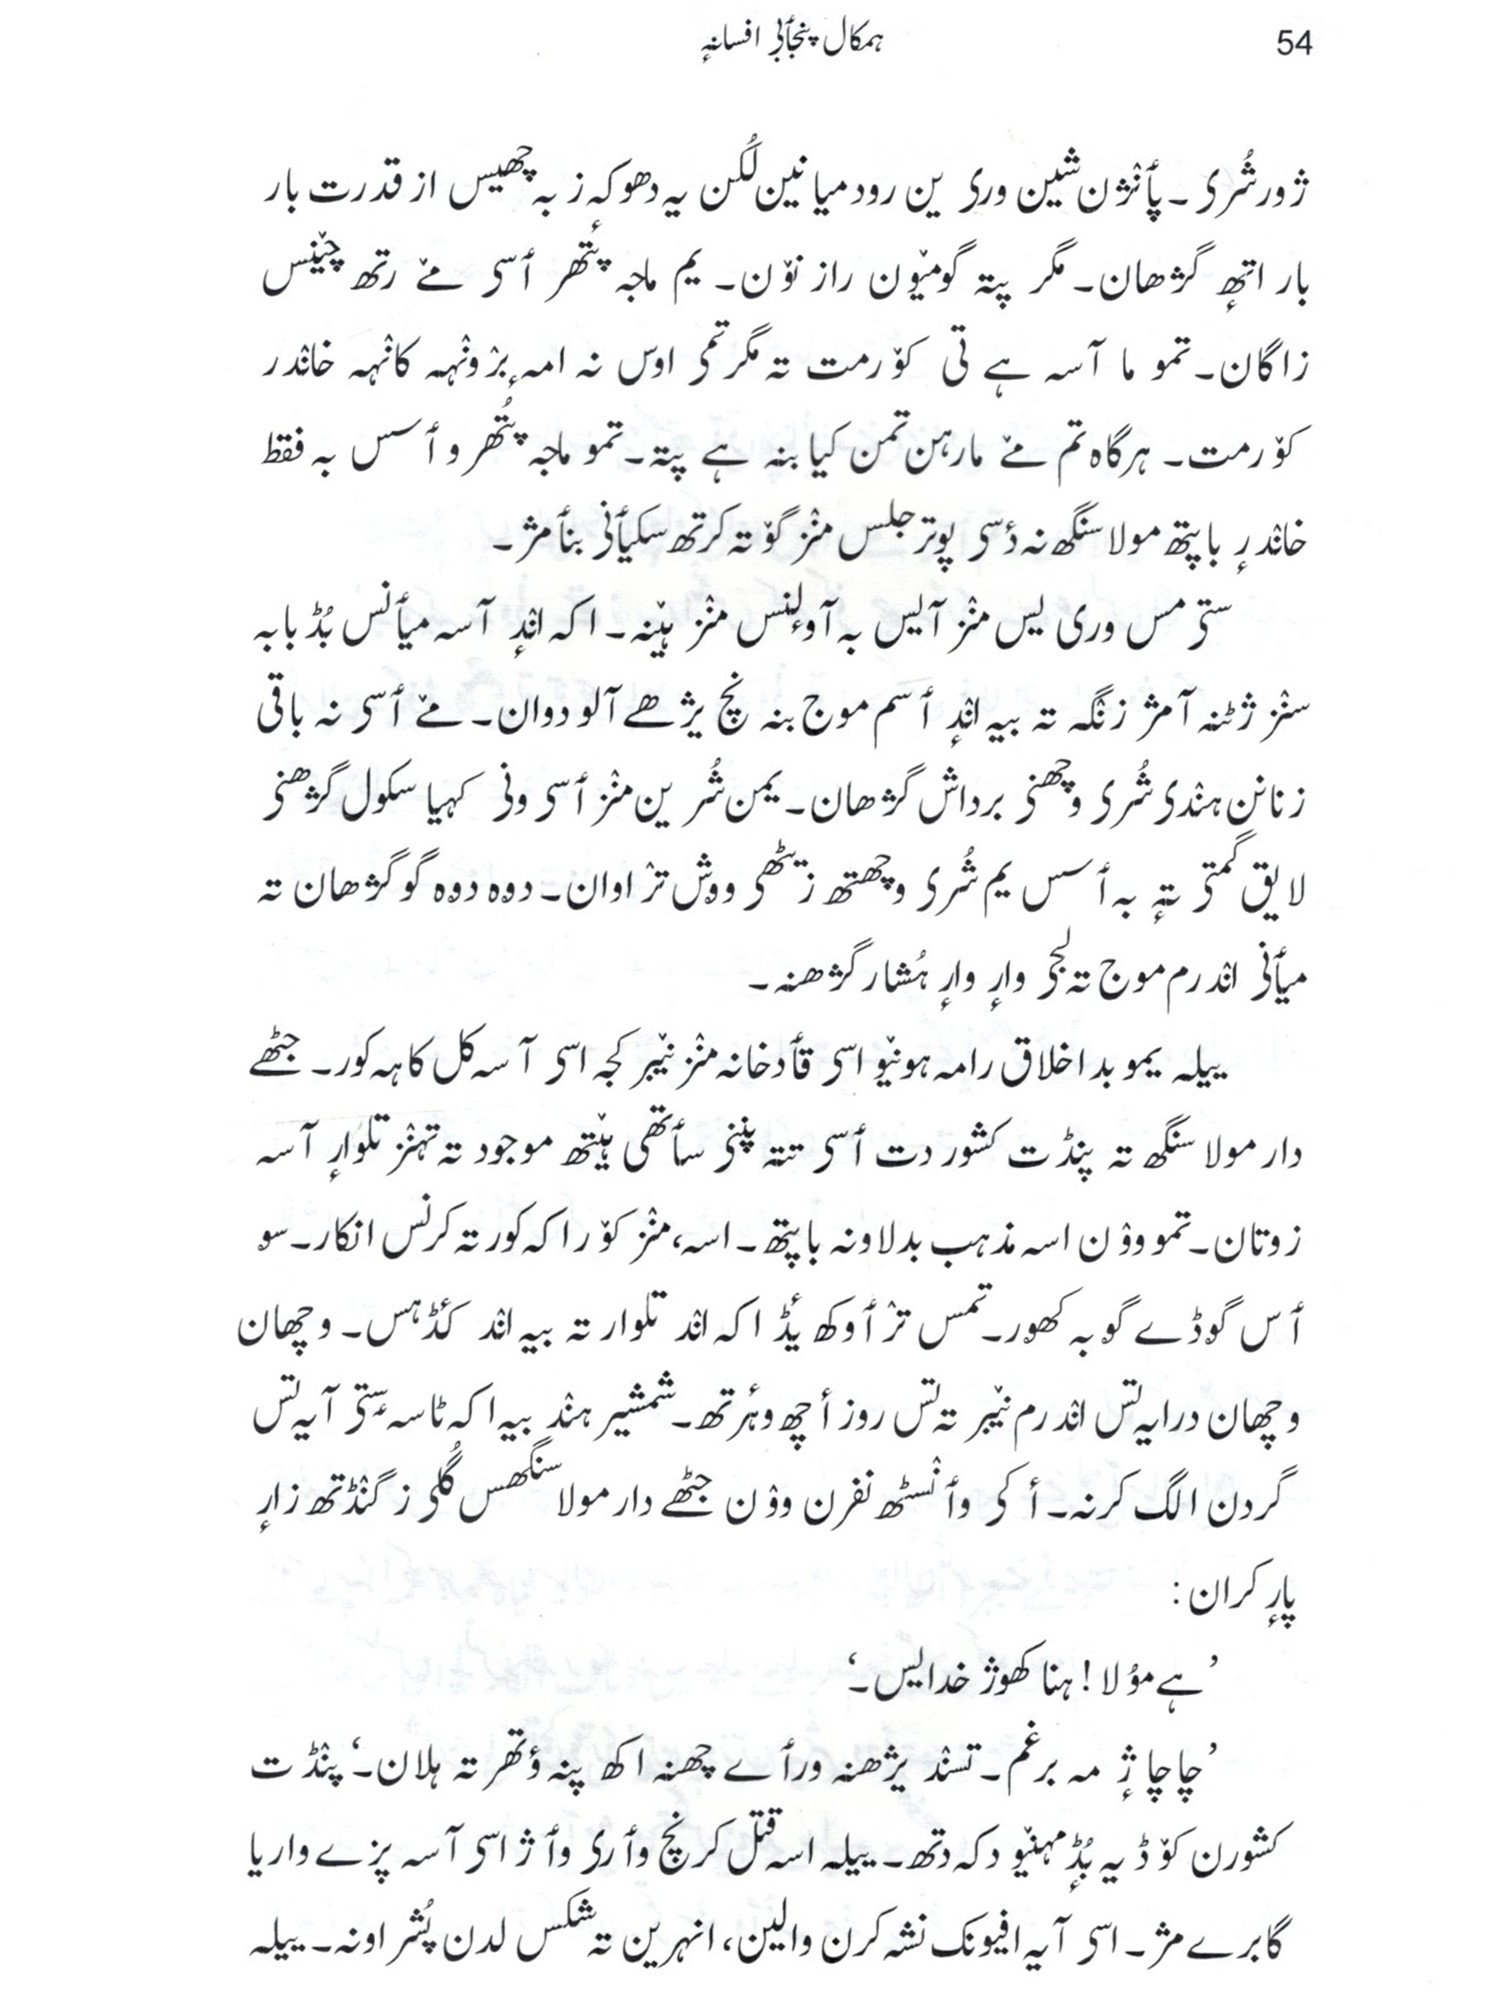 54
ہمکال پنجأبی افسانہٕ
ژور شُری ۔ پأنژن شین وری ین رود میانین لُکن یہ دھوکہٕ ز بہ چھیس از قدرت بار
بار اتھٕ گژھان۔ مگر پتہ گومیٚون راز نوٚن۔ یم ماجہ پُتھر أسی مےٚ رتھ چیٚنس
زاگان۔ تمو ما آسہ ہے تی کوٚرمت تہ مگر تمی اوس نہ امہٕ بڑونٛہہ کانٛہہ خانٛدر
کوٚرمت۔ ہرگاہ تم مےٚ مارہن تمن کیا بنہ ہے پتہ۔ تمو ماجہ پُتھرو أسس بہ فقط
خانٛدرٕ باپتھ مولا سنگھ نہ دٔسی پوتر جلس منٛز گوٚتہ کرتھ سکیأنی بنأمژ۔
ستی مس وری لیس منٛز آیس بہ آوٕلنس منٛز ہیٚنہ۔ اکہ انٛدٕ آسہ میأنس بُڈبابہ
سنٛز ژٹنہ آمژ زنٛگہ تہ بیہ انٛدٕ أسم موج بنہ نچ یژھے آلو دوان۔ مےٚ أسی نہ باقی
زنانن ہنٛدی شُری وچھنی برداش گژھان۔ یمن شُرین منٛز أسی ونی کہیا سکول گژھنی
لایق گمتی تہٕ بہ أسس یم شُری وچھتھ زیٹھی ووش تراوان۔ دوہ دوہ گو گژھان تہ
میأنی انٛدرم موج تہ لجی وارٕ وارٕ ہُشار گژھنہ۔
ییلہ یمو بداخلاق رامہ ہونیٚو اسی قأدخانہ منٛز نیٚبر کجہ اسی آسہ کل کاہہ کور۔ جتھے
دار مولا سنگھ تہ پنڈت کشور دت أسی تتہ پننی سأتھی ہیٚتھ موجود تہ تہنٛز تلوارٕ آسہ
زوتان۔ تمو ووٚن اسہ مذہب بدلاونہ باپتھ۔ اسہ منٛز کوٚر اکہ کور تہ کرنس انکار۔ سو
أس گوڈے گوبہ کھور۔ تمس ترأوکھ یٔڈ اکہ انٛد تلوار تہ بیہ انٛد کٔڈہس۔ وچھان
وچھان درایہ تس انٛدرم نیٚبر تہ تس روز أچھ وٕۂرتھ۔ شمشیر ہنٛد بیہ اکہ ٹاسہٕ ستی آیہ تس
گردن الگ کرنہ۔ أکی وأنٛسٹھ نفرن ووٚن جتھے دار مولا سنگھس گُلی ز گنٛڈتھ زارٕ
پارٕ کران :
’ہے موٗلا! ہنا کھوژ خدایس۔‘
’چاچا ژٕ مہ برغم۔ تسنٛد یژھنہ ورأے چھنہ اکھ پنہ وٕتھر تہ ہلان۔‘ پنڈت
کشورن کوٚڈ یہ بُڈٕ مہنیٚو دکہ دتھ۔ ییلہ اسہ قتل کرنچ وأری وأژ اسی آسہ پزے واریا
گابرے مژ۔ اسی آیہ افیونک نشہ کرن والین، انہرین تہ شکس لدن پُشر اونہ۔ ییلہ